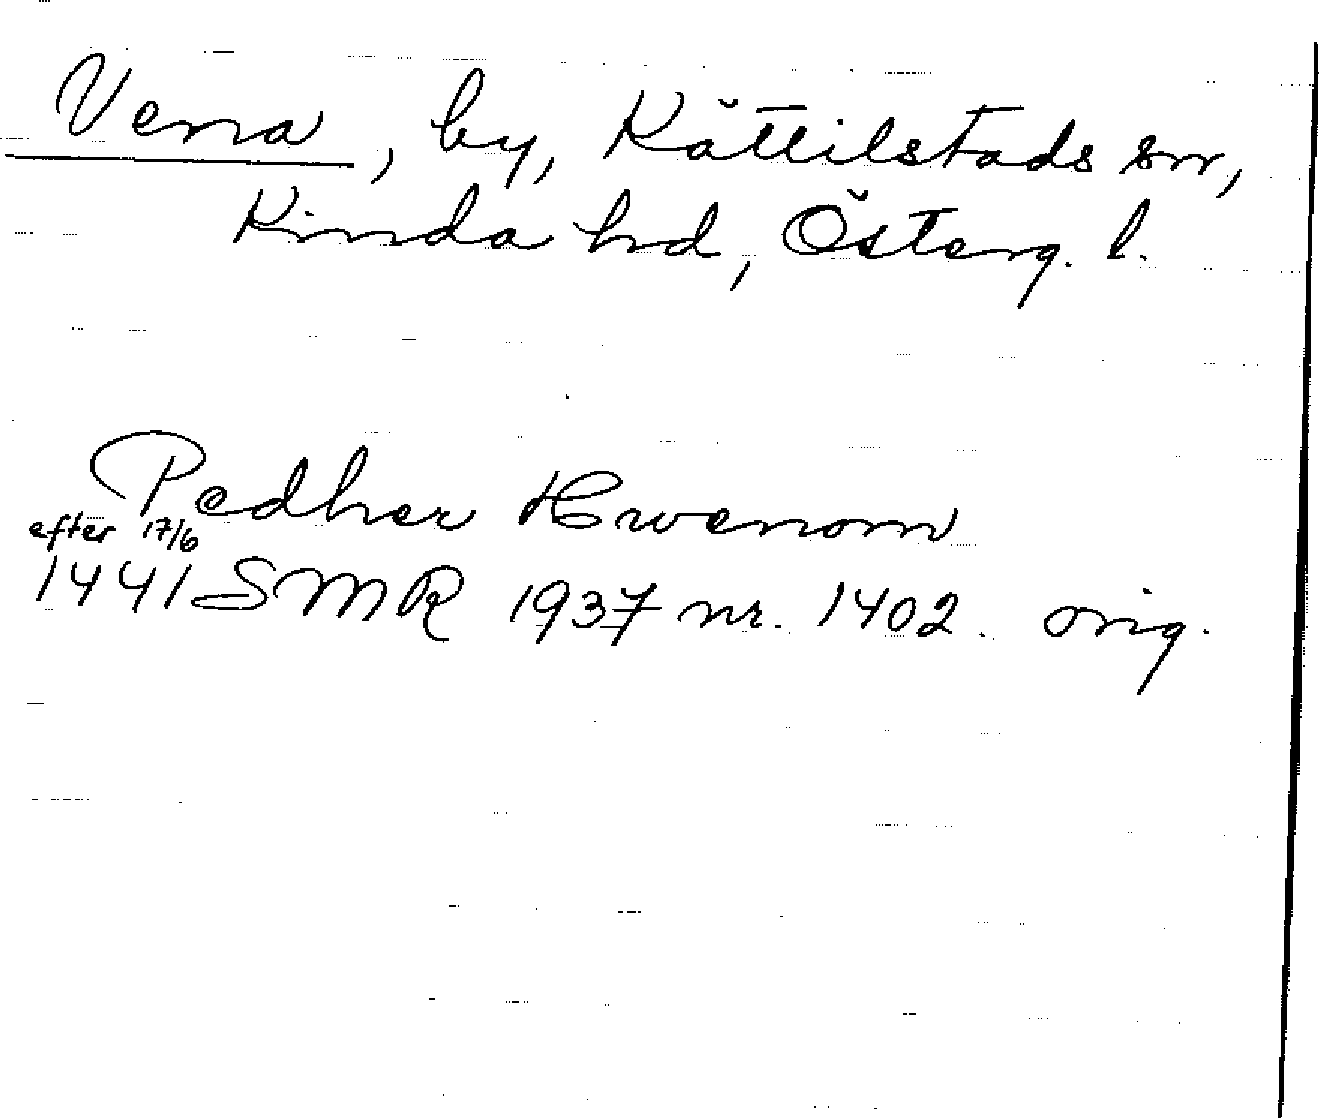 Vena, by, Kättilstads sn,
Kinda hd, Österg. l.
Pedher Hwenom
efter 17/6
1441 SMR 1937 nr. 1402. orig.